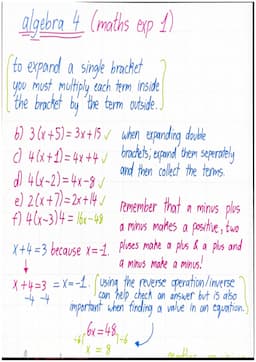 algebra 4 (maths exp 1)
to expand a single bracket
you must multiply each term inside
the bracket by the term outside.
b) 3(x+5)=3x+15 ✓
c) 4(x+1)=4x+4 ✓
d) 4(x-2)=4x-8 ✓
e) 2(x+7)=2x+14 ✓
f) 4(x-3)4=16x-48
when expanding double
brackets, expand them seperately
and then collect the terms.
remember that a minus plus
a minus makes a positive, two
pluses make a plus & a plus and
a minus make a minus!
x+4=3 because x=-1.
x+4=3 = x=-1.
-4 -4
using the reverse operation/inverse
can help check an answer but is also
important when finding a value in an equation.
6x=48
÷6 ÷6
x = 8